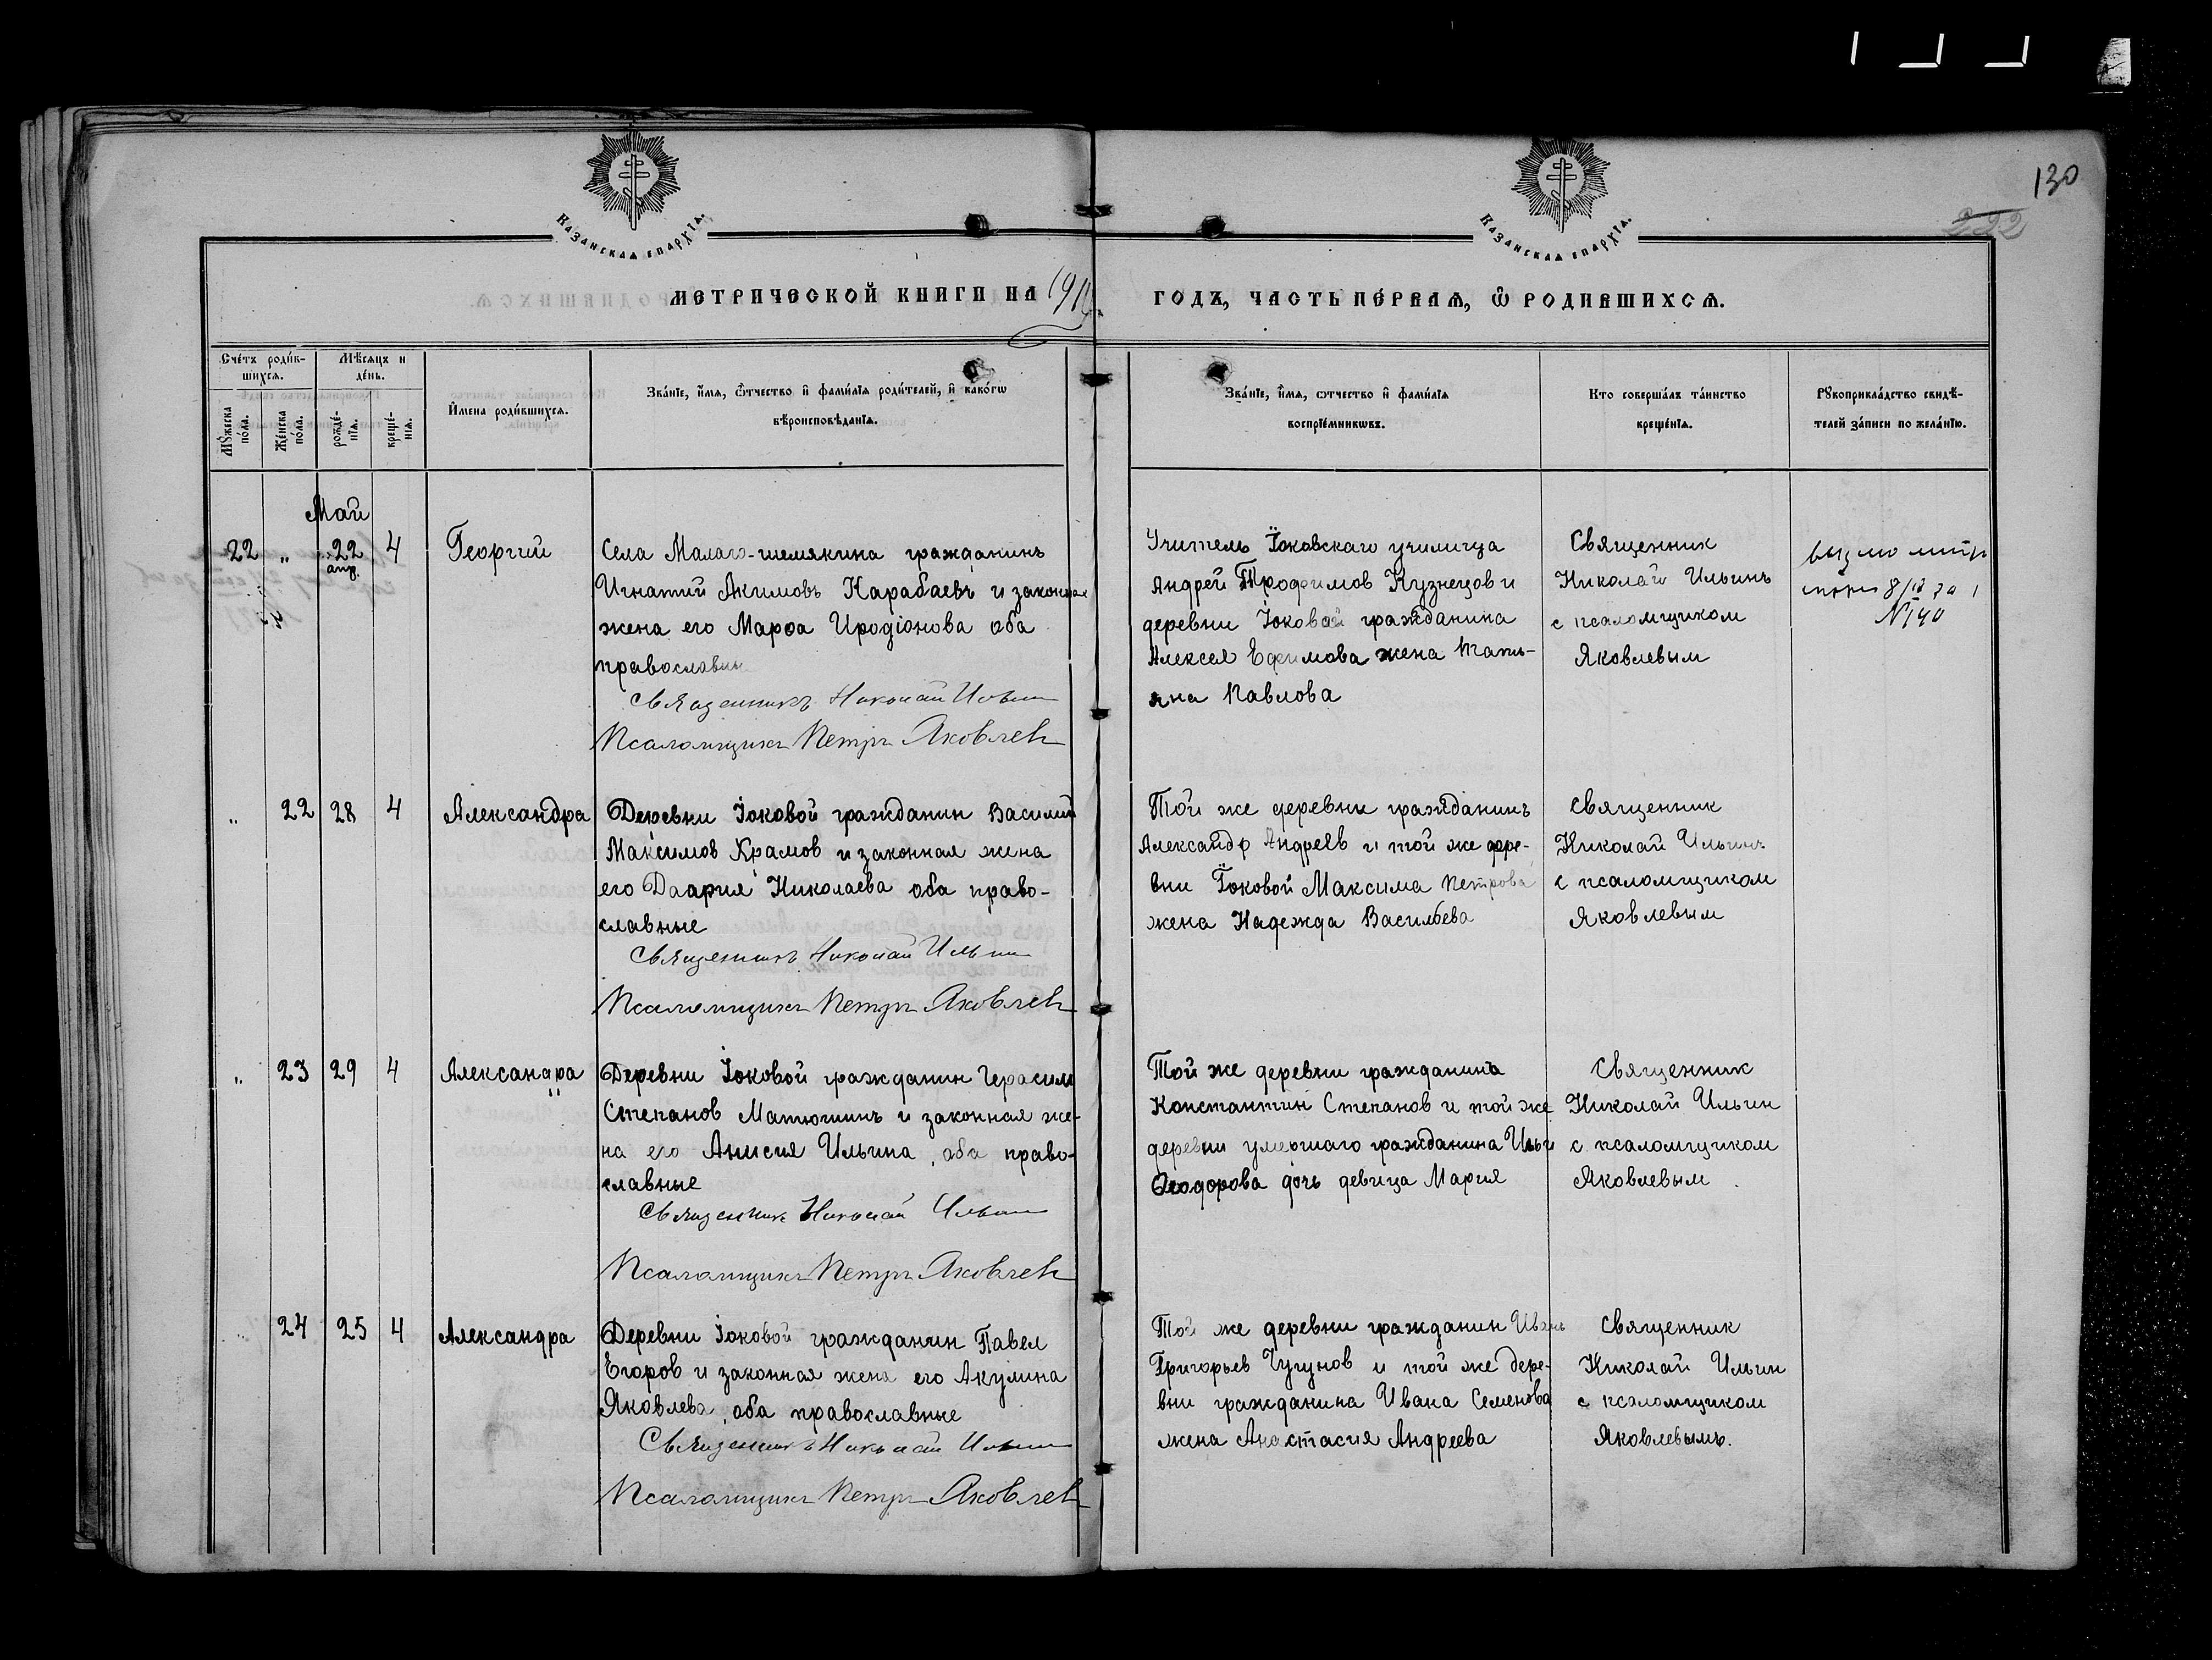 130
222
Казанская епархїѧ.
Казанская епархїѧ.
Метрической книги на 191
годъ, часть пе́рваѧ, ѡ родившихсѧ.
Сче́тъ роди́в-
шихсѧ.
Мѣ́сѧцъ и
де́нь.
Мꙋ́жеска
по́ла.
Же́нска
по́ла.
рожде́-
нїѧ.
креще́-
нїѧ.
И҆мена роди́вшихсѧ.
Зва́нїе, и҆́мѧ, ѻ҆́тчество и҆ фами́лїѧ роди́телей, и҆ како́гѡ
вѣроисповѣ́данїѧ.
Зва́нїе, и҆́мѧ, ѻ҆тчество и҆ фами́лїѧ
воспрїе́мникѡвъ.
Кто соверша́лъ та́инство
креще́нїѧ.
Рꙋкоприкла́дство свидѣ́-
телей за́писи по жела́нїю.
Май
22 " 22 4
апр.
Георгий
Села Малаго-шемякина гражданинъ
Игнатий Акимовъ Карабаевъ и законная
жена его Марѳа Иродіонова оба
православны
Священникъ Николай Ильин
Псаломщикъ Петръ Яковлевъ
Учитель Iоковскаго училища
Андрей Трофимов Кузнецов и
деревни Iоковой гражданина
Алексея Ефимова жена Тать-
яна Павлова
Священник
Николай Ильинъ
с псаломщиком
Яковлевым
" 22 28 4
Александра
Деревни Iоковой гражданин Василий
Максимов Храмов и законная жена
его Даария Николаева оба право-
славные
Священникъ Николай Ильин
Псаломщикъ Петръ Яковлевъ
Той же деревни гражданинъ
Александр Андреев и той же дере-
вни Iоковой Максима Петрова
жена Надежда Васильева
Священник
Николай Ильинъ
с псаломщиком
Яковлевым
" 23 29 4
Александра
Деревни Iоковой гражданин Герасим
Степанов Матюшинъ и законная же-
на его Анисия Ильина, оба право-
славные
Священник Николай Ильин
Псаломщикъ Петръ Яковлевъ
Той же деревни гражданина
Константин Степанов и той же
деревни умершаго гражданина Ильи
Ѳеодорова дочь девица Мария
Священник
Николай Ильин
с псаломщиком
Яковлевым
" 24 25 4
Александра
Деревни Iоковой гражданин Павел
Егоров и законная жена его Акулина
Яковлева, оба православные
Священникъ Николай Ильин
Псаломщикъ Петръ Яковлевъ
Той же деревни гражданин Иванъ
Григорьев Чугунов и той же дере-
вни гражданина Ивана Семенова
жена Анастасия Андреева
Священник
Николай Ильин
с псаломщиком
Яковлевымъ.